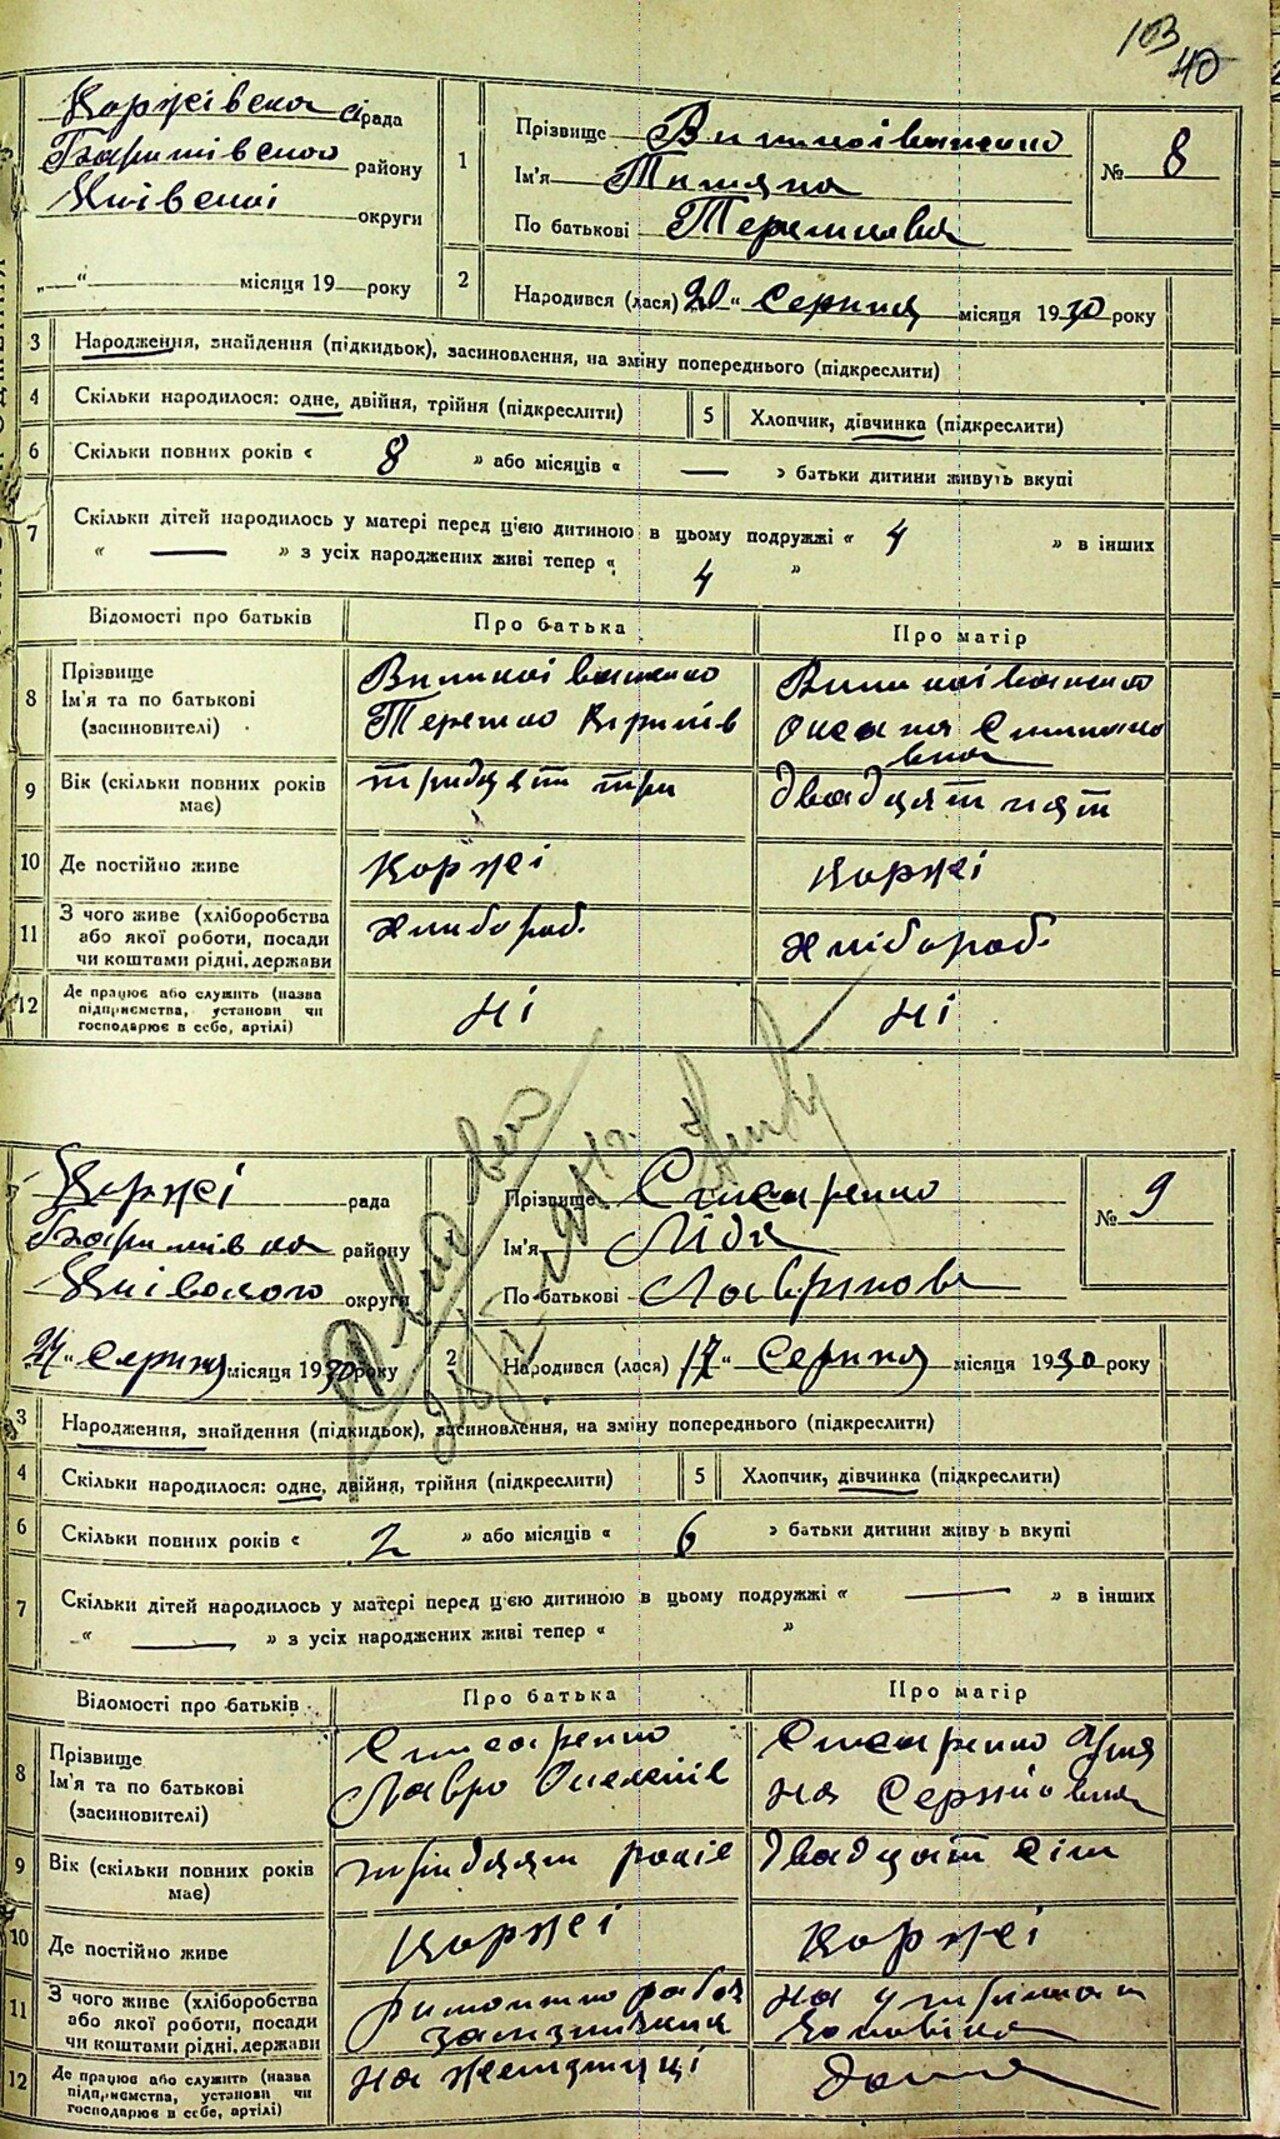 103
40
Коржівська с рада
Баришівсько району
Київскоі округи
„ “ місяця 19 року
1
Прізвище
Ім'я Титяна
По батькові Терешковна
№ 8
2
Народився (лася) 20 “ Серпня місяця 1930 року
3 Народження, знайдення (підкидьок), засиновлення, на зміну попереднього (підкреслити)
4 Скільки народилося: одне, двійня, трійня (підкреслити) 5 Хлопчик, дівчинка (підкреслити)
6 Скільки повних років « 8 » або місяців « — » батьки дитини живуть вкупі
7 Скільки дітей народилось у матері перед цією дитиною в цьому подружжі « 4 » в інших
« — » з усіх народжених живі тепер « 4 »
Відомості про батьків Про батька Про матір
8 Прізвище
Ім'я та по батькові
(засиновителі)
Терешко
Оксана Степанов
вна
9 Вік (скільки повних років
має)
тридцят три
двадцят пят
10 Де постійно живе Коржі Коржі
11 З чого живе (хліборобства
або якої роботи, посади
чи коштами рідні, держави
хлибороб.
хлібороб.
12 Де працює або служить (назва
підприємства, установи чи
господарює в себе, артілі)
Ні Ні
Коржі рада
Баришівка району
Київського округи
24 “ Серпня місяця 1930 року
Прізвище Снісаренко
Ім'я Ліда
По батькові Лавріновн
№ 9
2
Народився (лася) 17 “ Серпня місяця 1930 року
3 Народження, знайдення (підкидьок), засиновлення, на зміну попереднього (підкреслити)
4 Скільки народилося: одне, двійня, трійня (підкреслити) 5 Хлопчик, дівчинка (підкреслити)
6 Скільки повних років « 2 » або місяців « 6 » батьки дитини живу ь вкупі
7 Скільки дітей народилось у матері перед цією дитиною в цьому подружжі « — » в інших
« — » з усіх народжених живі тепер « »
Відомості про батьків Про батька Про матір
8 Прізвище
Ім'я та по батькові
(засиновителі)
Снісаренко
Лавро
Снісаренко Яри
на Сергійовна
9 Вік (скільки повних років
має)
тридцят років
двадцат сім
10 Де постійно живе Коржі Коржі
11 З чого живе (хліборобства
або якої роботи, посади
чи коштами рідні, держави
на утриман
Чоловіка
12 Де працює або служить (назва
підприємства, установи чи
господарює в себе, артілі)
дома